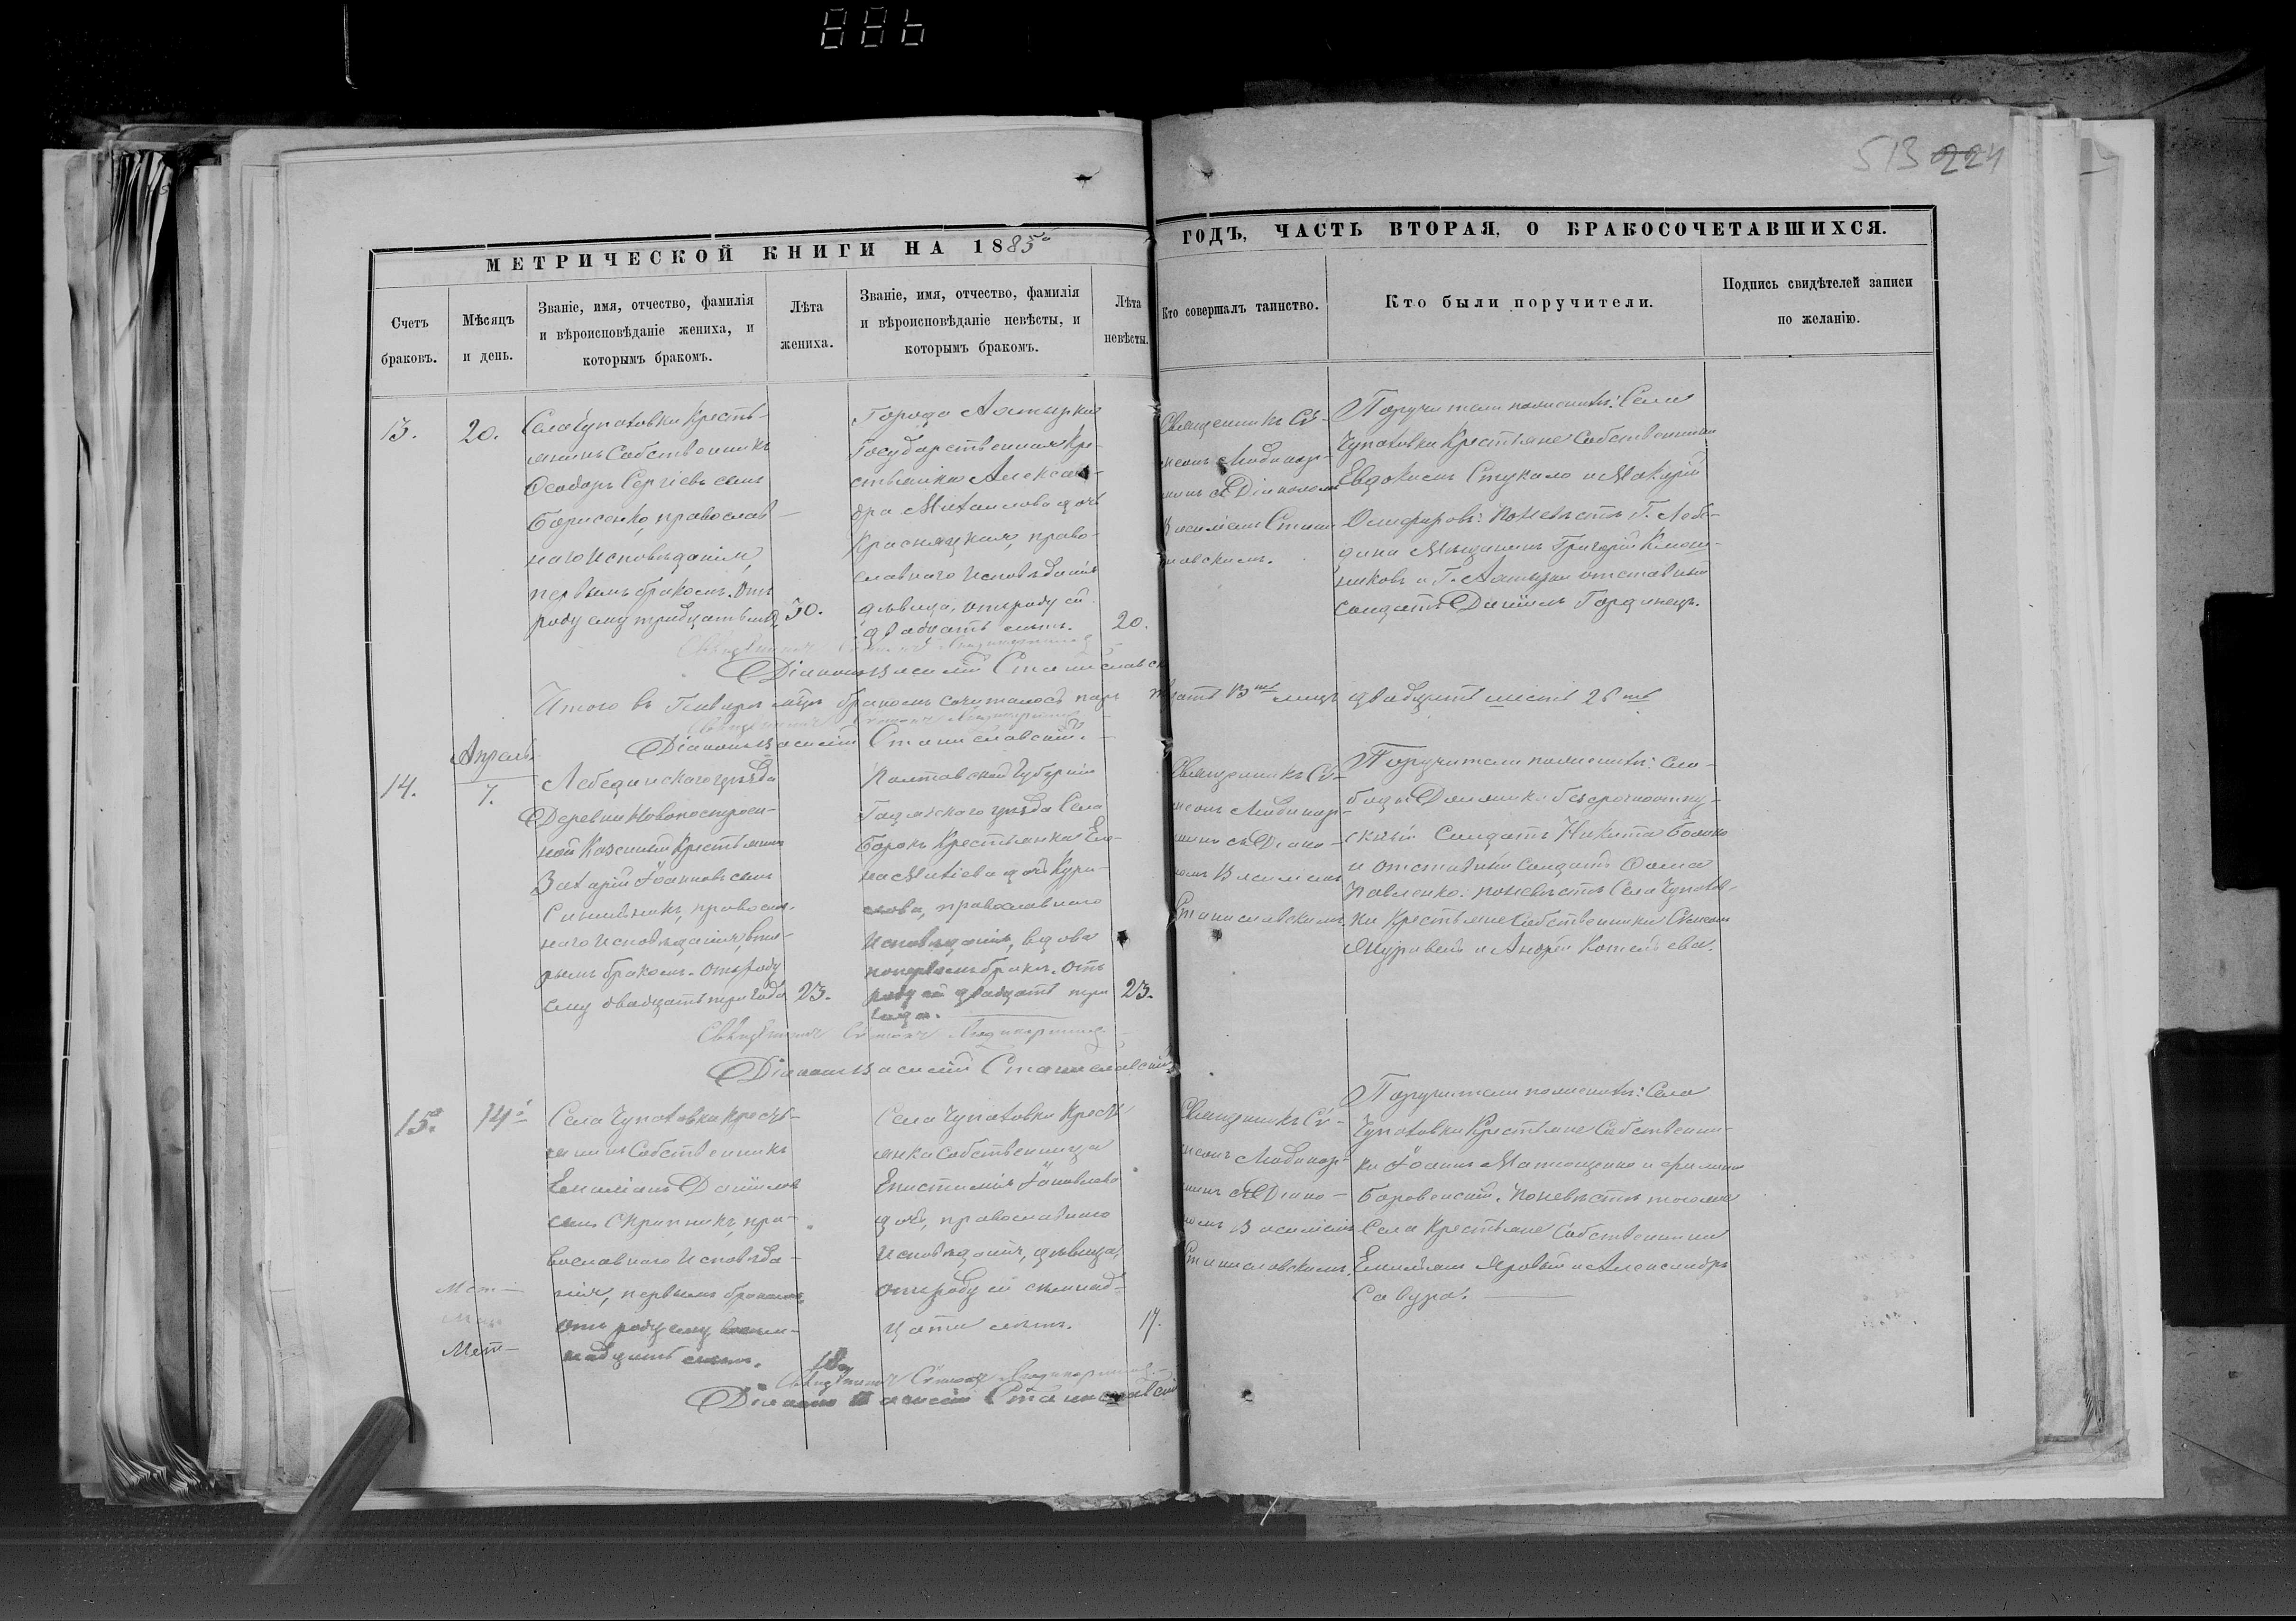 513 224
МЕТРИЧЕСКОЙ КНИГИ НА 1885
ГОДЪ, ЧАСТЬ ВТОРАЯ, О БРАКОСОЧЕТАВШИХСЯ.
Счетъ
браковъ.
Мѣсяцъ
и день.
Званіе, имя, отчество, фамилія
и вѣроисповѣданіе жениха, и
которымъ бракомъ.
Лѣта
жениха.
Званіе, имя, отчество, фамилія
и вѣроисповѣданіе невѣсты, и
которымъ бракомъ.
Лѣта
невѣсты.
Кто совершалъ таинство.
Кто были поручители.
Подпись свидѣтелей записи
по желанію.
13.
20.
Села Чупаховки Кресть-
янинъ Собственникъ
Ѳеодоръ Сергіевъ сынъ
Борисенко, православ-
наго исповѣданія,
первымъ бракомъ. Отъ
роду ему тридцать лѣтъ
30.
Города Ахтырки
Государственная Кре-
стьянка Алексан-
дра Михаилова дочь
Красняцкая, право-
славнаго исповѣданія
дѣвица, отъ роду ей
двадцать лѣтъ.
20.
Священникъ Сѵ-
меонъ
съ Діакономъ
Василіемъ Стани-
славскимъ.
Поручители по женихѣ: Села
Чупаховки Крестьяне Собственники
Евдокимъ Стукало и Макарій
Онифировъ: по невѣстѣ Г. Лебе-
дина Мѣщанинъ Григорій
и Г. Ахтырки отставный
солдатъ Даніилъ Гординецъ.
Священникъ Сѵмеонъ
Діаконъ Василій Станиславскій
Итого въ Генварѣ мцѣ бракомъ сочиталось паръ 13 лицъ двадцать шесть 26
Священникъ Сѵмеонъ
Діаконъ Василій Станиславскій.
Апрель
14.
7.
Лебединскаго уѣзда
Деревни Новопостроен-
ной Казенный Крестьянинъ
Захарій Іоанновъ сынъ
православ-
наго исповѣданія, вто-
рымъ бракомъ. Отъ роду
ему двадцать три года
23.
Полтавской Губерніи
Гадячскаго уѣзда Села
Борокъ Крестьянка Еле-
на дочь Кури-
лова, православнаго
исповѣданія, вдова
по первомъ бракѣ. Отъ
роду ей двадцать три
года.
23.
Священникъ Сѵ-
меонъ
съ Діако-
номъ Василіемъ
Станиславскимъ.
Поручители по женихѣ: Сло-
боды безсрочноотпу-
скный Солдатъ Никита Бойко
и отставный солдатъ Ѳома
Павленко: по невѣстѣ Села Чупахов-
ки Крестьяне Собственники Сѵмеонъ
Журавель и Андрей
Священникъ Сѵмеонъ
Діаконъ Василій Станиславскій
15.
14
Села Чупаховки Кресть-
янинъ Собственникъ
Емиліанъ Даніиловъ
сынъ Скрипникъ, пра-
вославнаго исповѣда-
нія, первымъ бракомъ.
Отъ роду ему восем-
надцать лѣтъ.
18.
Села Чупаховки Кресть
янка Собственница
Епистимія Іаковлева
дочь, православнаго
исповѣданія, дѣвица,
отъ роду ей семнад-
цать лѣтъ.
17.
Священникъ Сѵ-
меонъ
съ Діако-
номъ Василіемъ
Станиславскимъ.
Поручители по женихѣ: Села
Чупаховки Крестьяне Собственни-
ки Іоаннъ Матющенко и Филиппъ
Боровенскій. По невѣстѣ тогоже
Села Крестьяне Собственники
Емиліанъ Яровый и Александръ
Савура.
Священникъ Сѵмеонъ
Діаконъ Василій Станиславскій